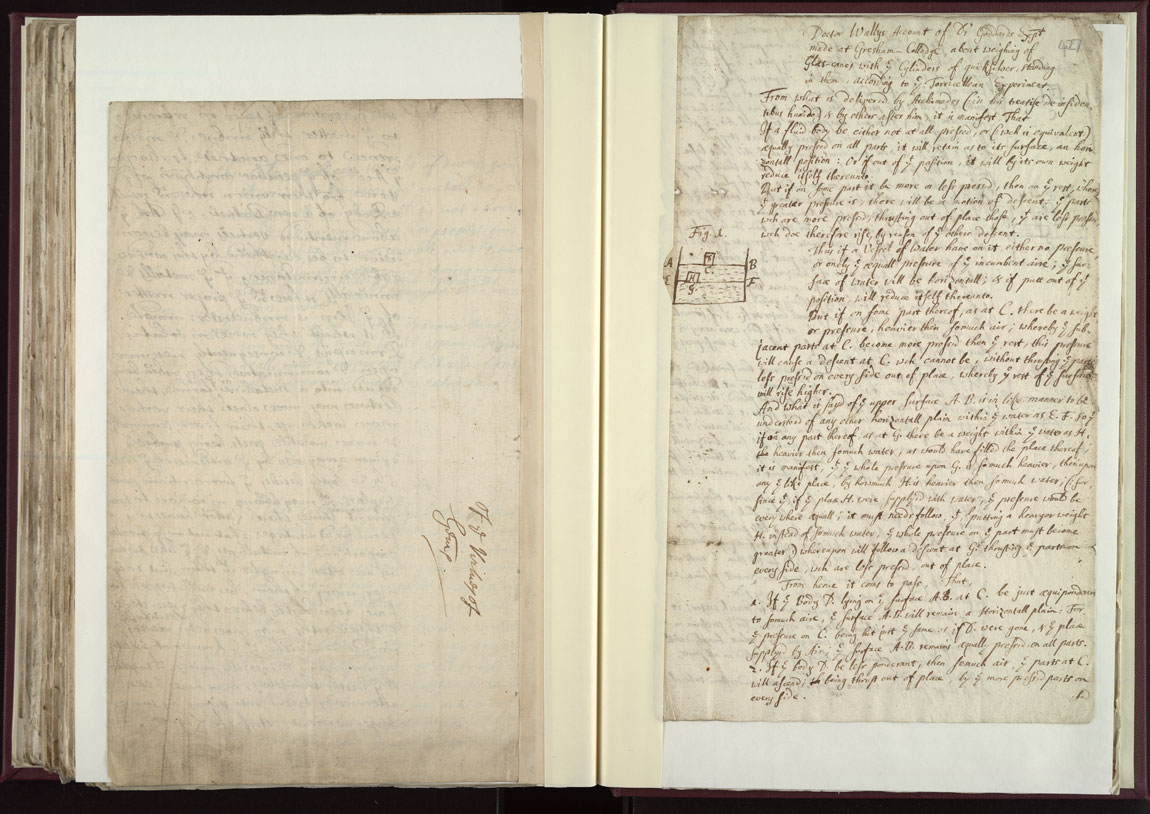 Of yͤ Velusof
Group.
427
Doctor Wallys Account of Dr Godards Expt
made at Gresham-Colledge, about weighing of
Glas-canes with yͤ Cylinders of quicksilver, standing
in them, according to yͤ Torricellian Experiment
From what is delivered by Archimedes (in his treatise de insiden-
tibus humido) & by others after him, it is manifest That
If a fluid body be either not at all pressed, or (wch is equivalent)
æqually pressed on all parts, it will retain as to its surface, an hori
zontall position: Or if out of yͭ position, it will by its own weight
reduce itself thereunto.
But if on some part it be more or less pressed, then on yͤ rest, where
yͤ greater pressure is, there will be a motion of descent: yͤ parts
wch are more pressed, thrusting out of place those, yͭ are less pressed
wch doe therefore rise, by reason of yͤ others descent.
Fig. 1.
A B
D
C.
E F
H
G.
Thus if a Vessel of Water have on it either no pressure,
or onely yͤ æquall pressure of yͤ incumbent aire; yͤ sur-
face of water will be horizontall; & if putt out of yͭ
position, will reduce itself thereunto.
But if on some part thereof, as at C. there be a weight
or pressure, heavier then somuch air; whereby yͤ sub-
jacent parts at C. become more pressed then yͤ rest, this pressure
will cause a descent at C. wch cannot be, without thrusting yͤ parts
less pressed on every side out of place, whereby yͤ rest of yͤ surface
will rise higher.
And what is said of yͤ upper surface A.B. is in like manner to be
understood of any other horizontall plain within yͤ water as E.F. So yͭ
if on any part thereof as at G. there be a weight within yͤ water as H.
heavier then somuch water, as would have filled the place thereof;
it is manifest, yͭ yͤ whole pressure upon G. is somuch heavier, then upon
any yͤ like place, by howmuch H. is heavier then somuch water; (for,
since yͭ if yͤ place H. were supplyed with water, yͤ pressure would be
every where æquall; it must needs follow, yͭ putting a heavyer weight
H. instead of somuch water, yͤ whole pressure on yͭ part must become
greater) whereupon will follow a descent at G. thrusting yͤ parts on
every side, wch are less pressed, out of place.
From hence it coms to pass, That,
1. If yͤ Body D. lying on yͤ surface A.B. at C. be just æquiponderant
to somuch aire, yͤ surface A.B. will remain a Horizontall plain: For
yͤ pressure on C. being but just yͤ same as if D. were gone, & yͤ place
supplyed by Air; yͤ surface A.B. remains equally pressed on all parts.
2. If yͤ body D. be less ponderant, then somuch air, yͤ parts at C.
will ascend; being thrust out of place by yͤ more pressed parts on
every side.